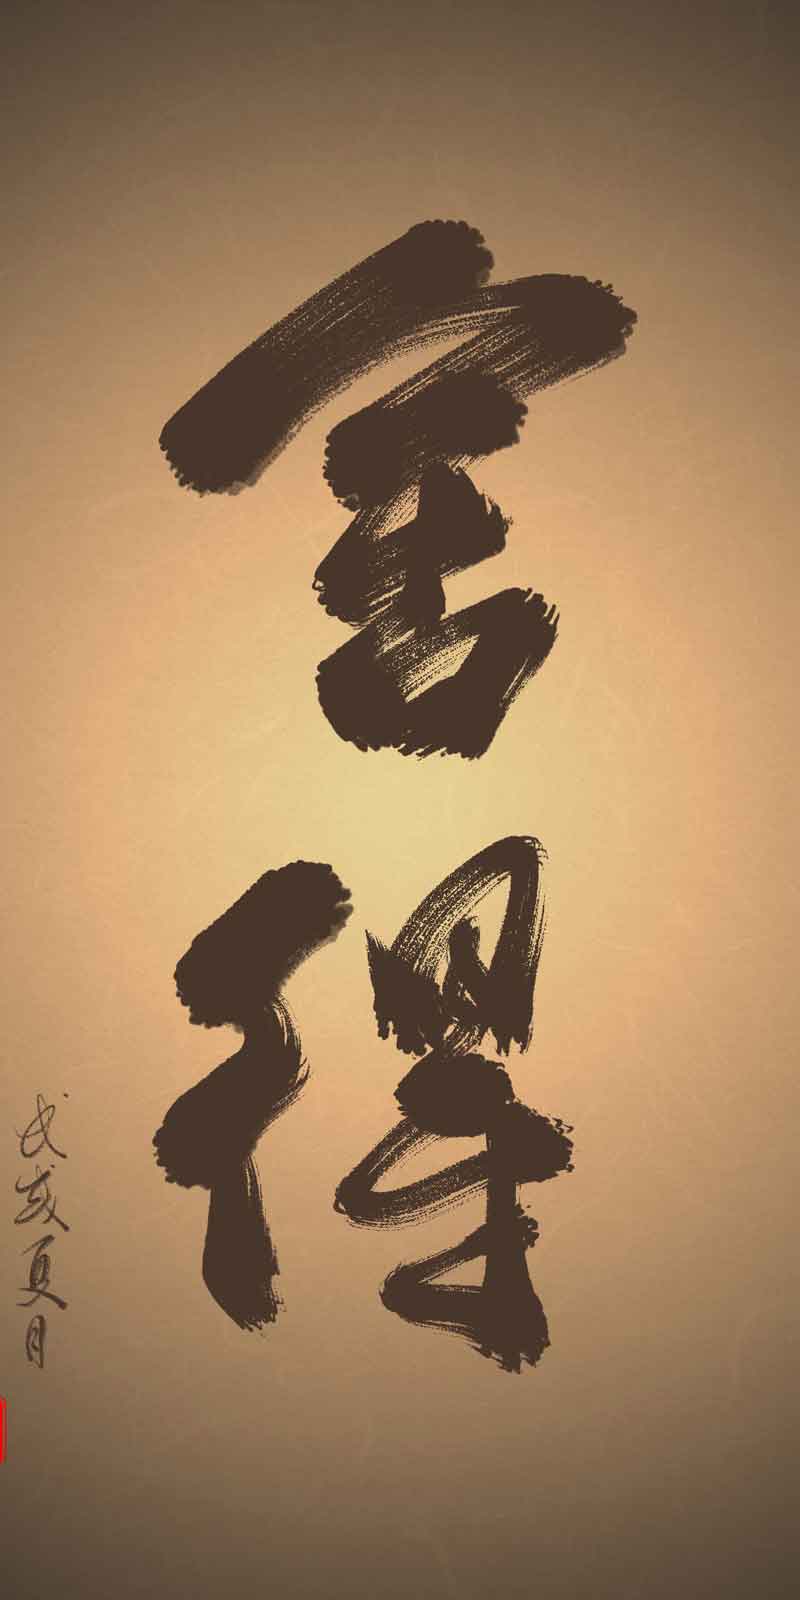 舍得
戊戌夏月